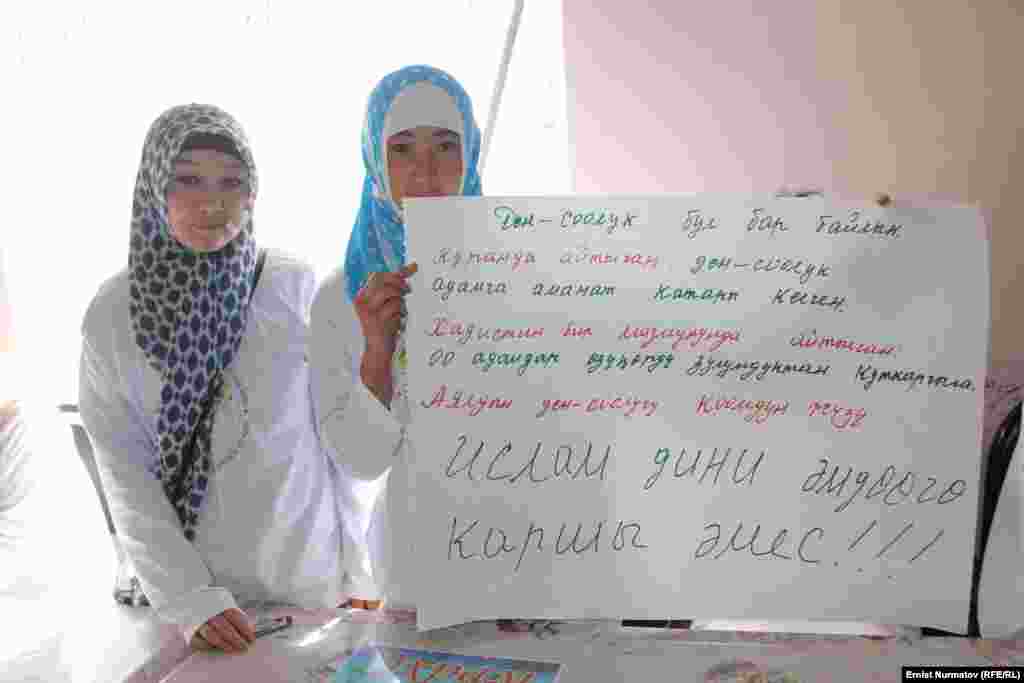 Ден-соолук бул бар байлык.
Куранда айтылган, ден-соолук
адамга аманат катары келген.
Хадистин бир мазмунунда айтылган:
оо адамдар өзүңөрдү зулумдуктан куткаргыла.
Аялуын ден-соолугу коомдун жүзү
Ислам дини эмдөөгө
каршы эмес!!!
Ernist Nurmatov (RFE/RL)